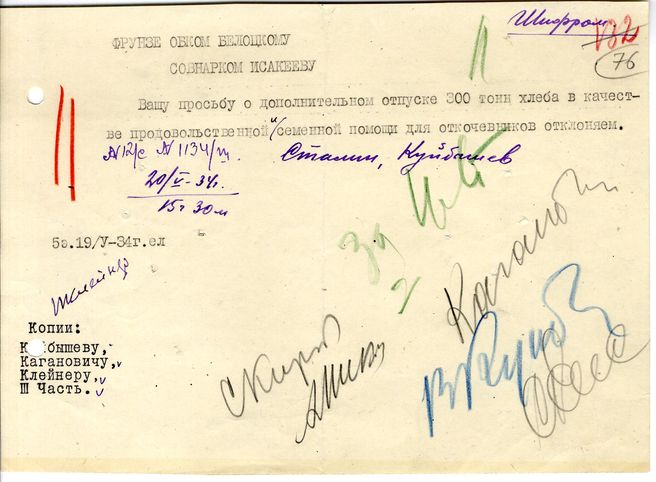 Шифром
132
76
ФРУНЗЕ ОБКОМ БЕЛОЦКОМУ
СОВНАРКОМ ИСАКЕЕВУ
Вашу просьбу о дополнительном отпуске 300 тонн хлеба в качест-
ве продовольственной и/семенной помощи для откочевников отклоняем.
N 12/с N 1134/ш. Сталин, Куйбышев
20/V-34г.
15ч 30м
5э.19/У-34г.ел
т. Клейнер
Копии:
К йбышеву,
Кагановичу,
Клейнеру,
III Часть.
за
Каганович
С Киров
А Микоян
В Куйб